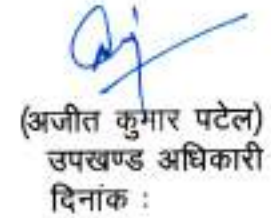 (अजीत कुमार पटेल)
उपखण्ड अधिकारी
दिनांक :